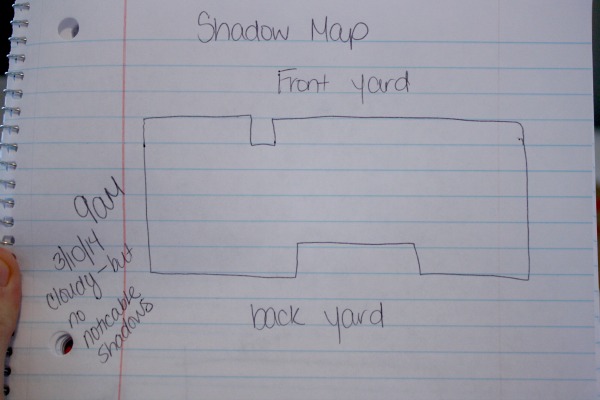 Shadow Map
Front yard
9am
3/10/14
cloudy-but
no
noticable
shadows
back yard